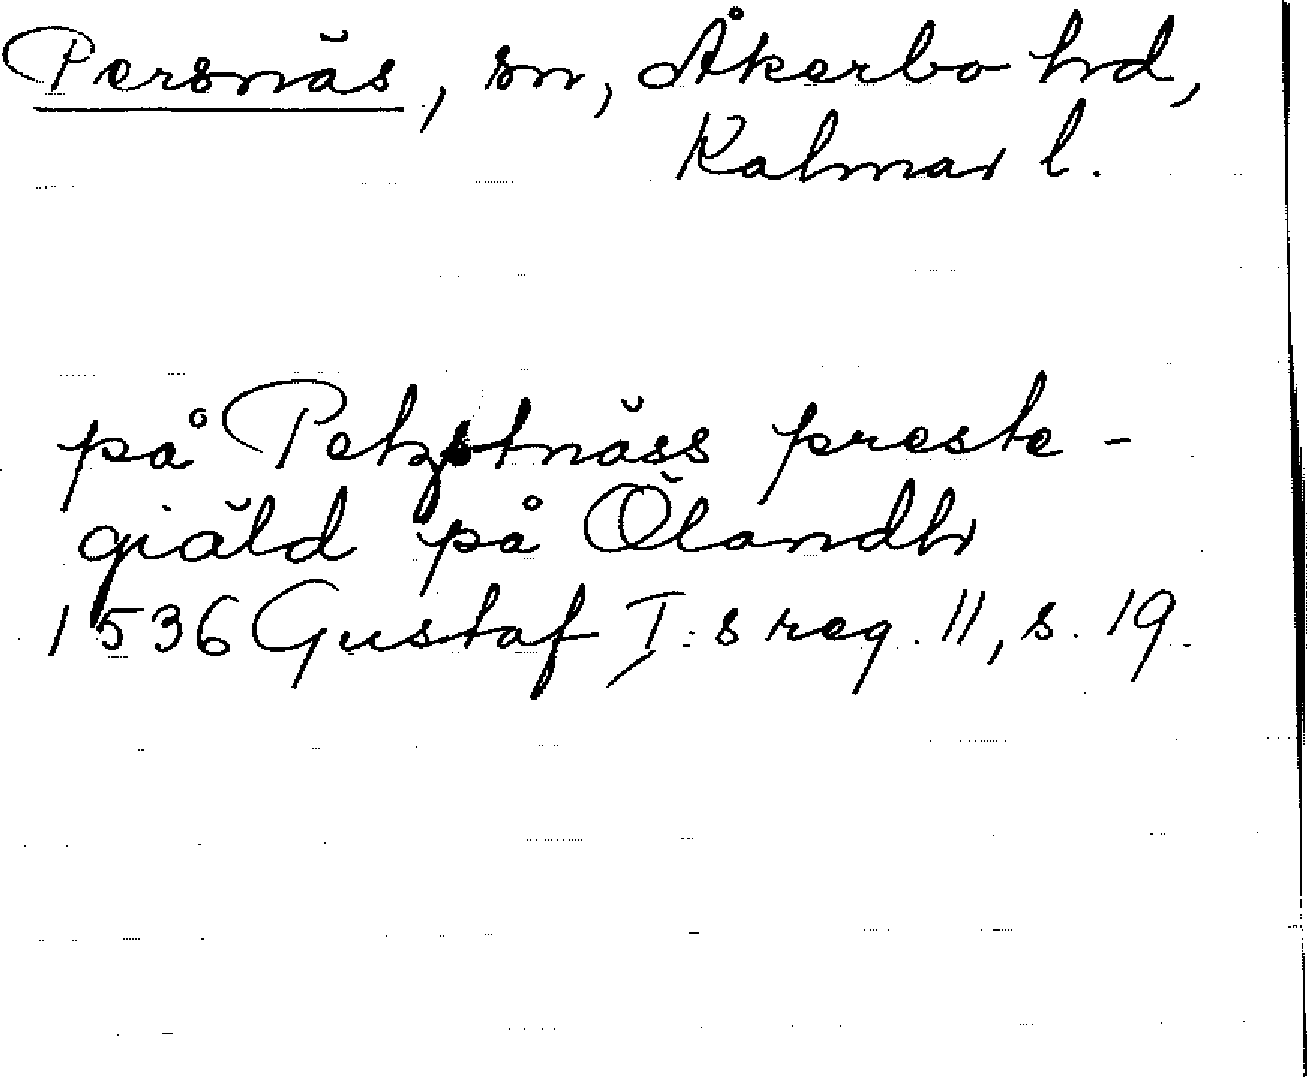 Persnäs, sn, Åkerbo hd,
Kalmar l.
på Petzstnäss preste-
giäld på Ölandh
1536 Gustaf I:s reg. 11, s. 19.